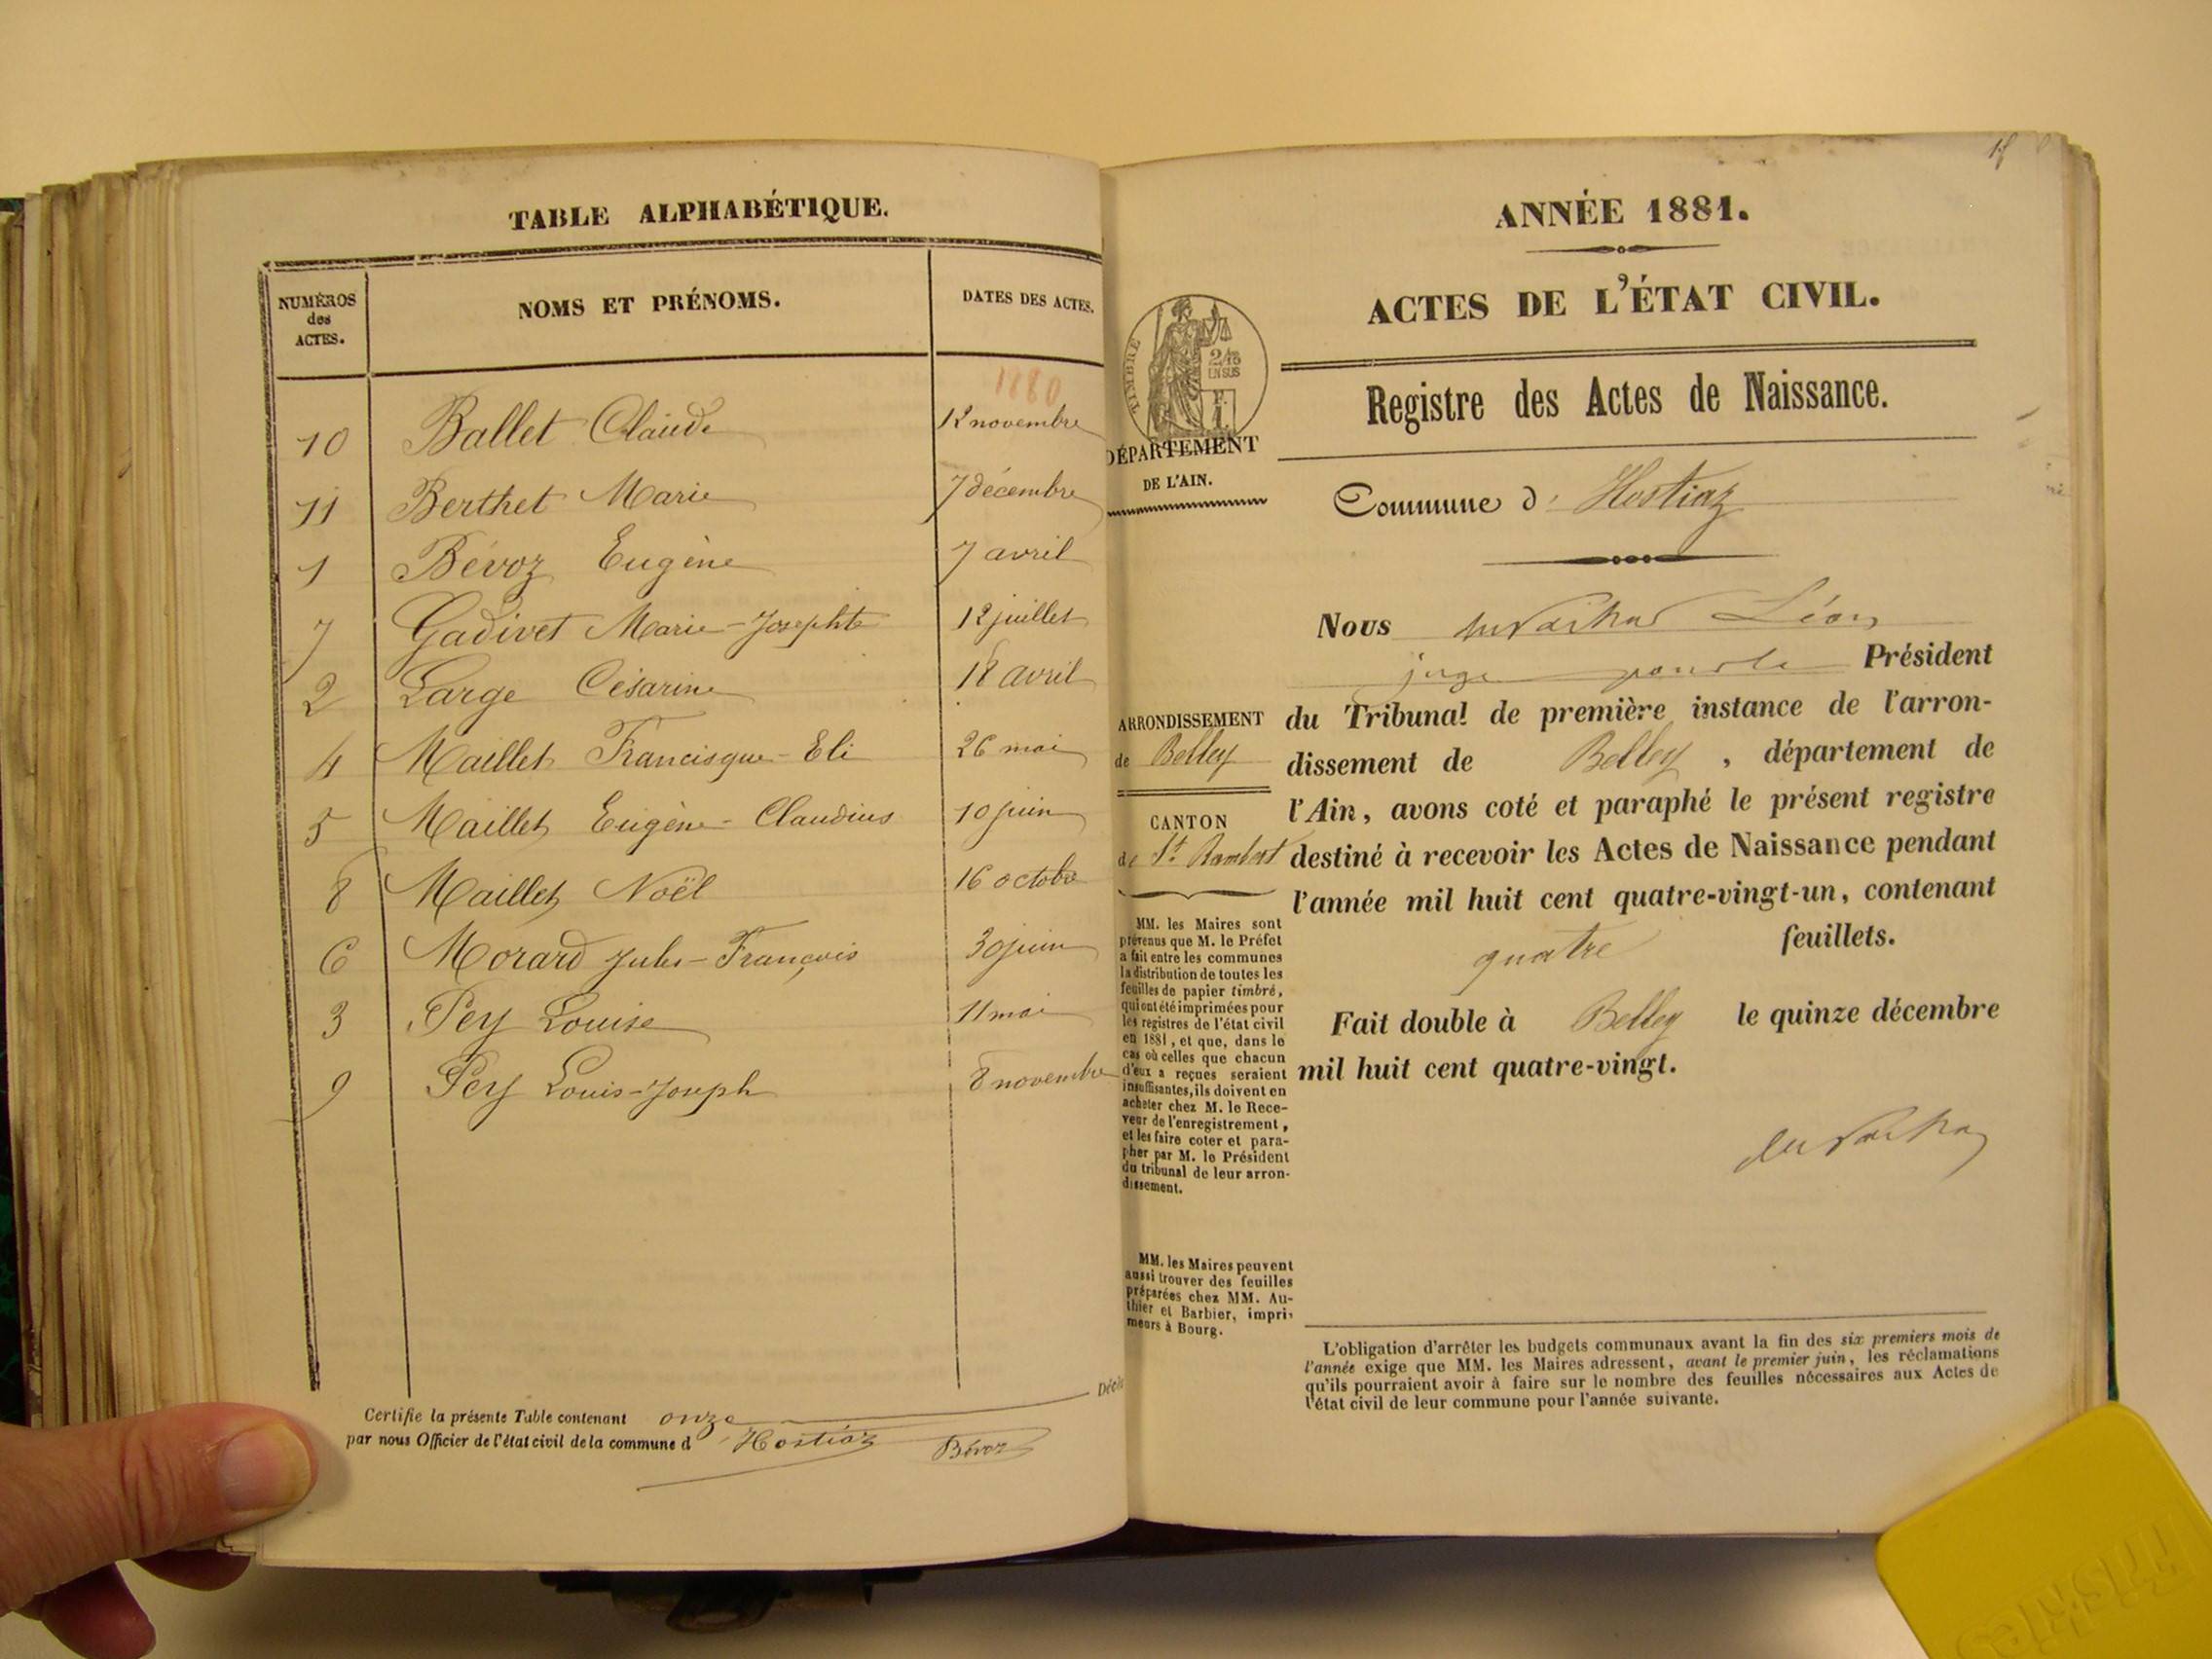 TABLE ALPHABÉTIQUE.
NUMÉROS
des
ACTES.
NOMS ET PRÉNOMS.
DATES DES ACTES.
1880
10 Ballet Claude 12 novembre
11 Berthet Marie 7 décembre
1 Bévoz Eugène 7 avril
7 Gadivet Marie-Josephte 12 juillet
2 Large Césarine 18 avril
4 Maillet Francisque-Eli 26 mai
5 Maillet Eugène-Claudius 10 juin
8 Maillet Noël 16 octobre
6 Morard Jules-François 30 juin
3 Pey Louise 11 mai
9 Pey Louis-Joseph 8 novembre
Certifie la présente Table contenant onze
par nous Officier de l'état civil de la commune d'Hostiaz Bévoz
ANNÉE 1881.
ACTES DE L'ÉTAT CIVIL.
TIMBRE
2/10
EN SUS
DÉPARTEMENT
DE L'AIN.
Registre des Actes de Naissance.
Commune d' Hostiaz
Nous Léon
juge pour le Président
du Tribunal de première instance de l'arron-
dissement de Belley, département de
l'Ain, avons coté et paraphé le présent registre
destiné à recevoir les Actes de Naissance pendant
l'année mil huit cent quatre-vingt-un, contenant
quatre feuillets.
Fait double à Belley le quinze décembre
mil huit cent quatre-vingt.
ARRONDISSEMENT
de Belley
CANTON
de St. Rambert
MM. les Maires sont
prévenus que M. le Préfet
a fait entre les communes
la distribution de toutes les
feuilles de papier timbré,
qui ont été imprimées pour
les registres de l'état civil
en 1881, et que, dans le
cas où celles que chacun
d'eux a reçues seraient
insuffisantes, ils doivent en
acheter chez M. le Rece-
veur de l'enregistrement,
et les faire coter et para-
pher par M. le Président
du tribunal de leur arron-
dissement.
MM. les Maires peuvent
aussi trouver des feuilles
préparées chez MM. Au-
thier et Barbier, impri-
meurs à Bourg.
L'obligation d'arrêter les budgets communaux avant la fin des six premiers mois de
l'année exige que MM. les Maires adressent, avant le premier juin, les réclamations
qu'ils pourraient avoir à faire sur le nombre des feuilles nécessaires aux Actes de
l'état civil de leur commune pour l'année suivante.